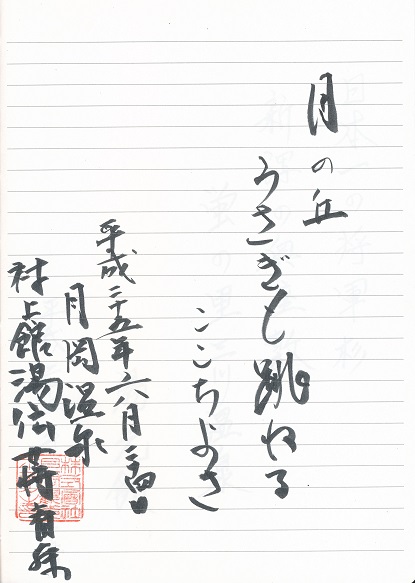 月の丘
うさぎも跳ねる
ここちよさ
平成二十五年六月二四日
月岡温泉
村上館湯伝